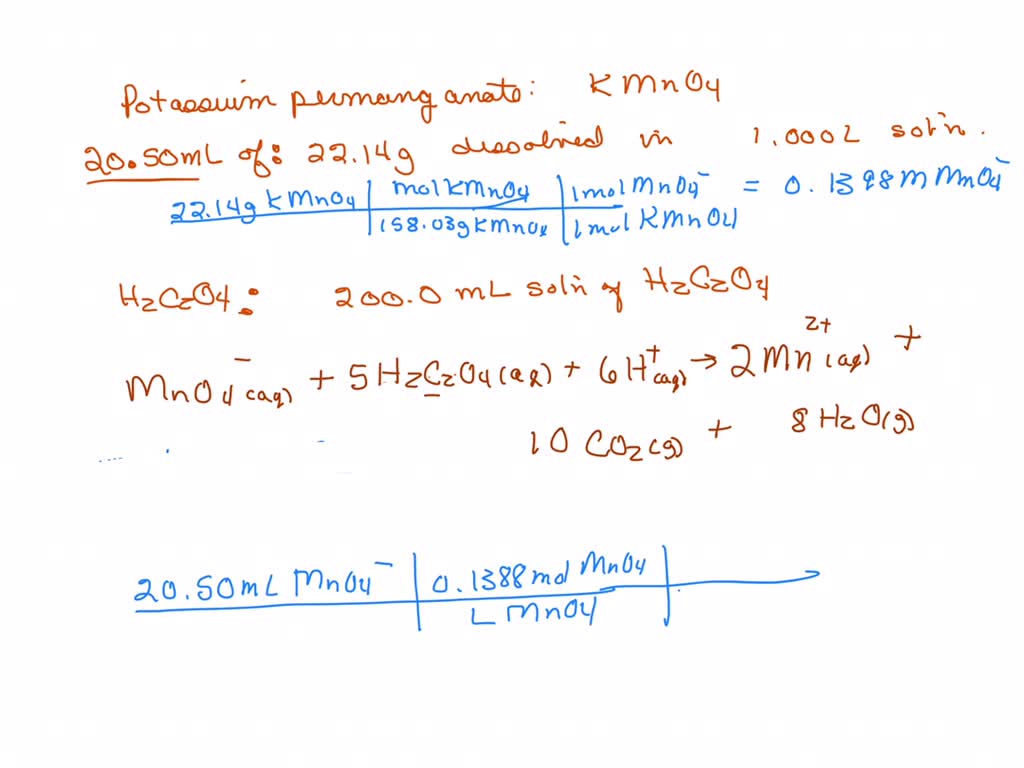 Potassium permanganate: KMnO4
20.50mL of: 22.14g dissolved in 1.000L sol'n.
22.14g KMnO4 | mol KMnO4 | 1mol MnO4⁻ = 0.1398M MnO4⁻
158.03g KMnO4 | 1mol KMnO4
H2C2O4: 200.0 mL sol'n of H2C2O4
MnO4⁻(aq) + 5H2C2O4(aq) + 6H⁺(aq) → 2Mn²⁺(aq) +
10 CO2(g) + 8H2O(g)
20.50mL MnO4⁻ | 0.1388mol MnO4
L MnO4